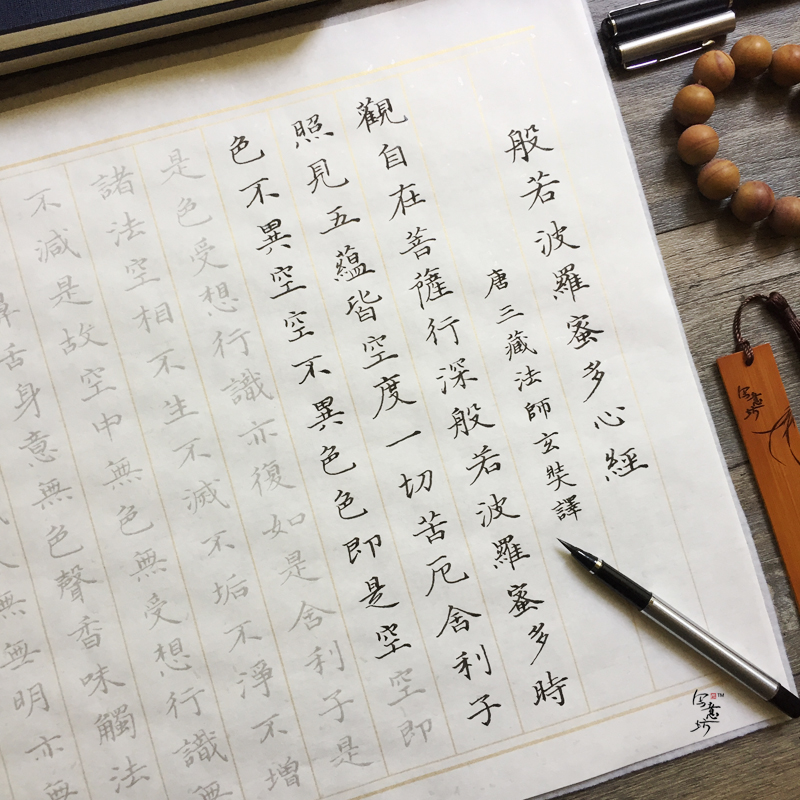 般若波羅蜜多心經
唐三藏法師玄奘譯
觀自在菩薩行深般若波羅蜜多時
照見五蘊皆空度一切苦厄舍利子
色不異空空不異色色即是空空即
是色受想行識亦復如是舍利子是
諸法空相不生不滅不垢不淨不增
不減是故空中無色無受想行識無
鼻舌身意無色聲香味觸法
無無明亦無
写意坊
写意坊™